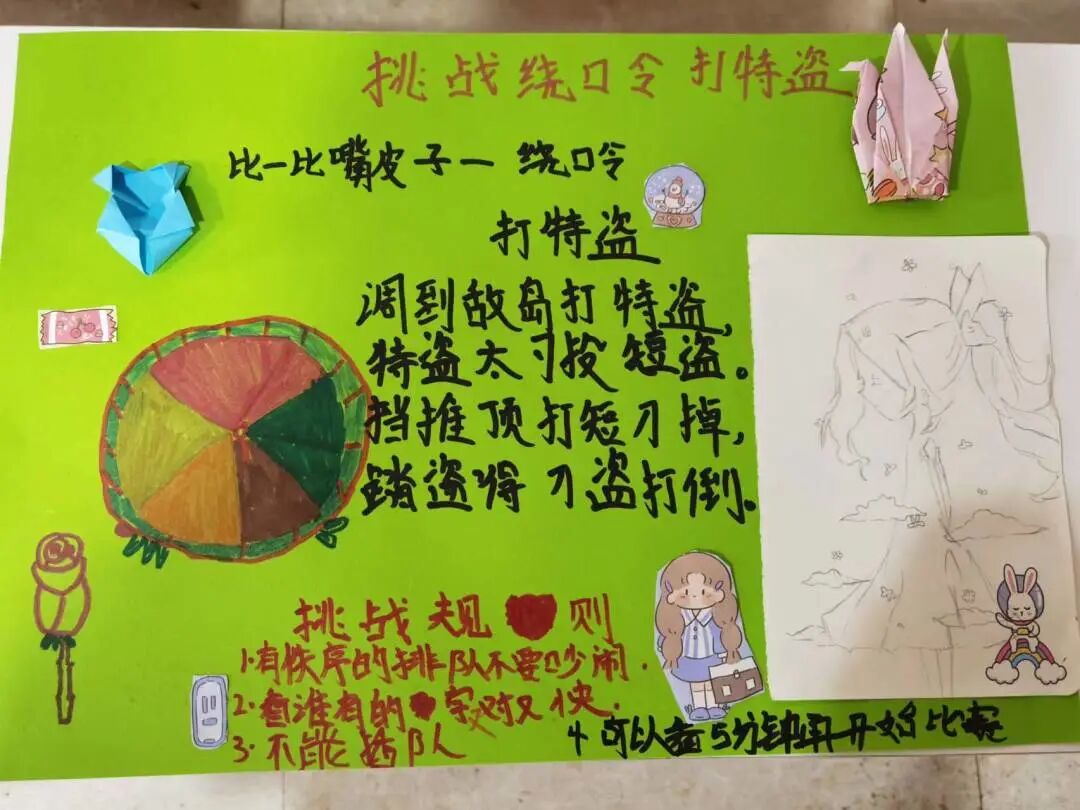 挑战绕口令打特盗
比一比嘴皮子一绕口令
打特盗
调到敌岛打特盗,
特盗太刁投短盗。
挡推顶打短刀掉,
踏盗得刀盗打倒。
挑战规则
1.有秩序的排队不要吵闹.
2.看准有的字又对又快.
3.不能插队
4.可以看5分钟再开始比赛